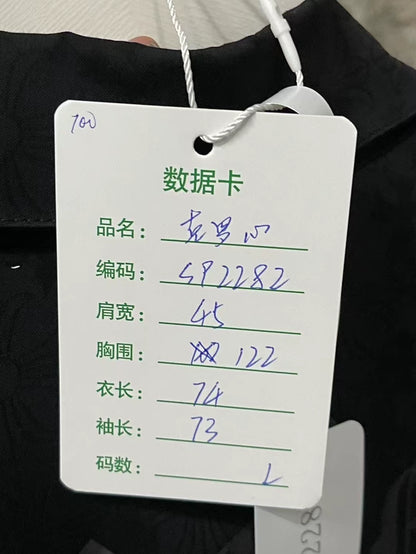 700
数据卡
品名：左罗心
编码：SP2282
肩宽：45
胸围：122
衣长：74
袖长：73
码数：L
228